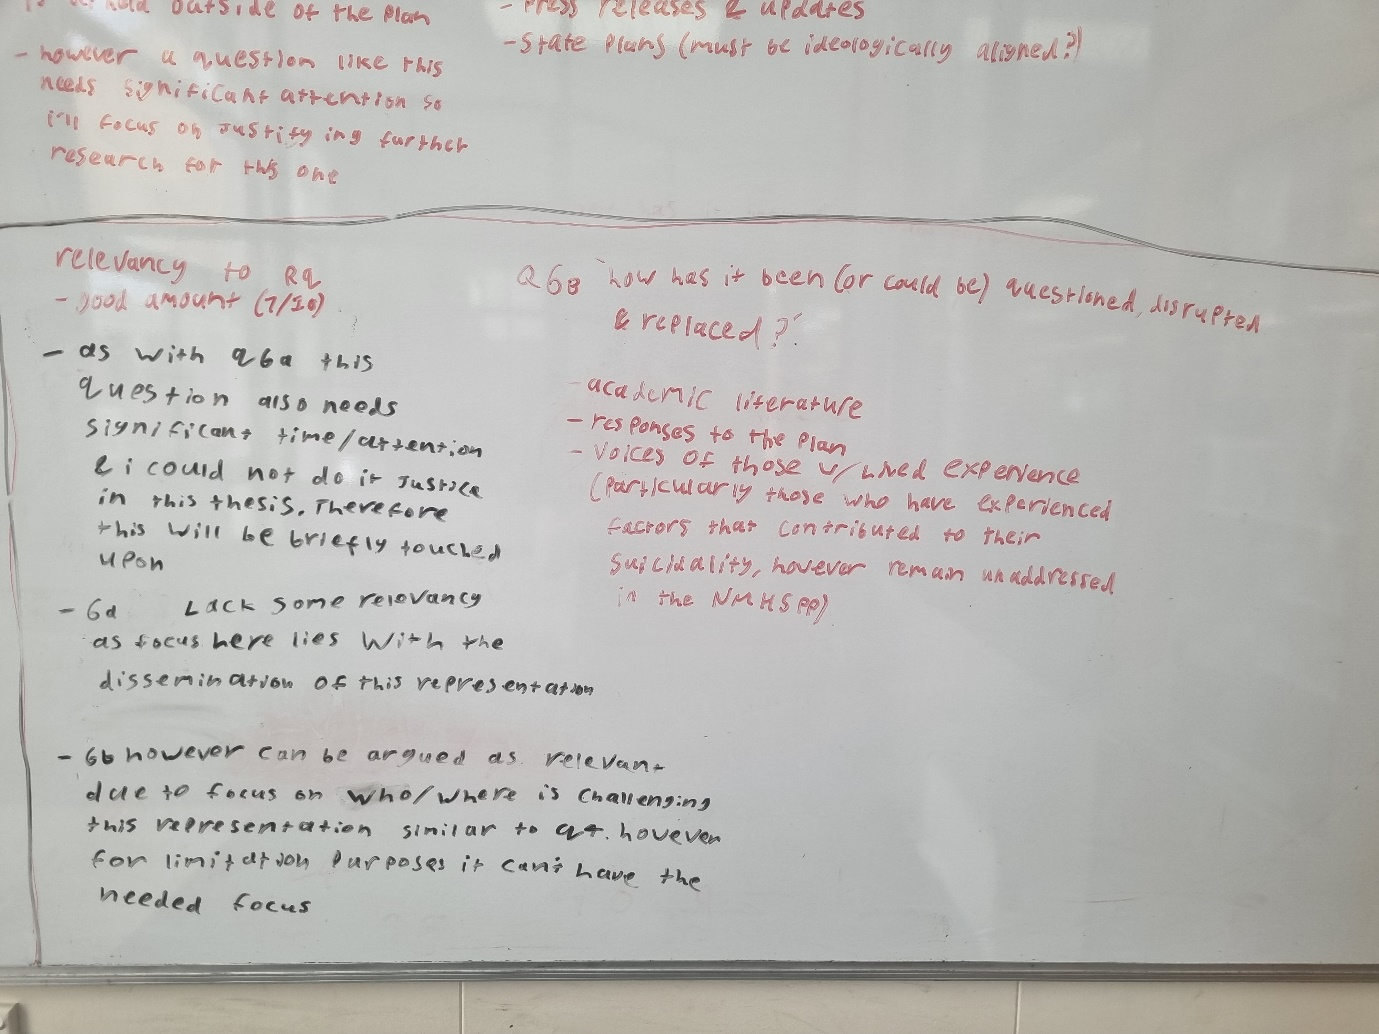 outside of the plan
- however a question like this
needs significant attention so
i'll focus on justifying further
research for this one
- press releases & updates
- State plans (must be ideologically aligned?)
relevancy to RQ
- good amount (7/10)
- as with q6a this
question also needs
significant time/attention
& i could not do it justice
in this thesis. Therefore
this will be briefly touched
upon
- 6a Lack some relevancy
as focus here lies with the
dissemination of this representation
- 6b however can be argued as relevant
due to focus on who/where is challenging
this representation similar to q4. however
for limitation purposes it can't have the
needed focus
Q6B "how has it been (or could be) questioned, disrupted
& replaced?"
- academic literature
- responses to the plan
- voices of those w/ lived experience
(particularly those who have experienced
factors that contributed to their
suicidality, however remain unaddressed
in the NMHSPP)